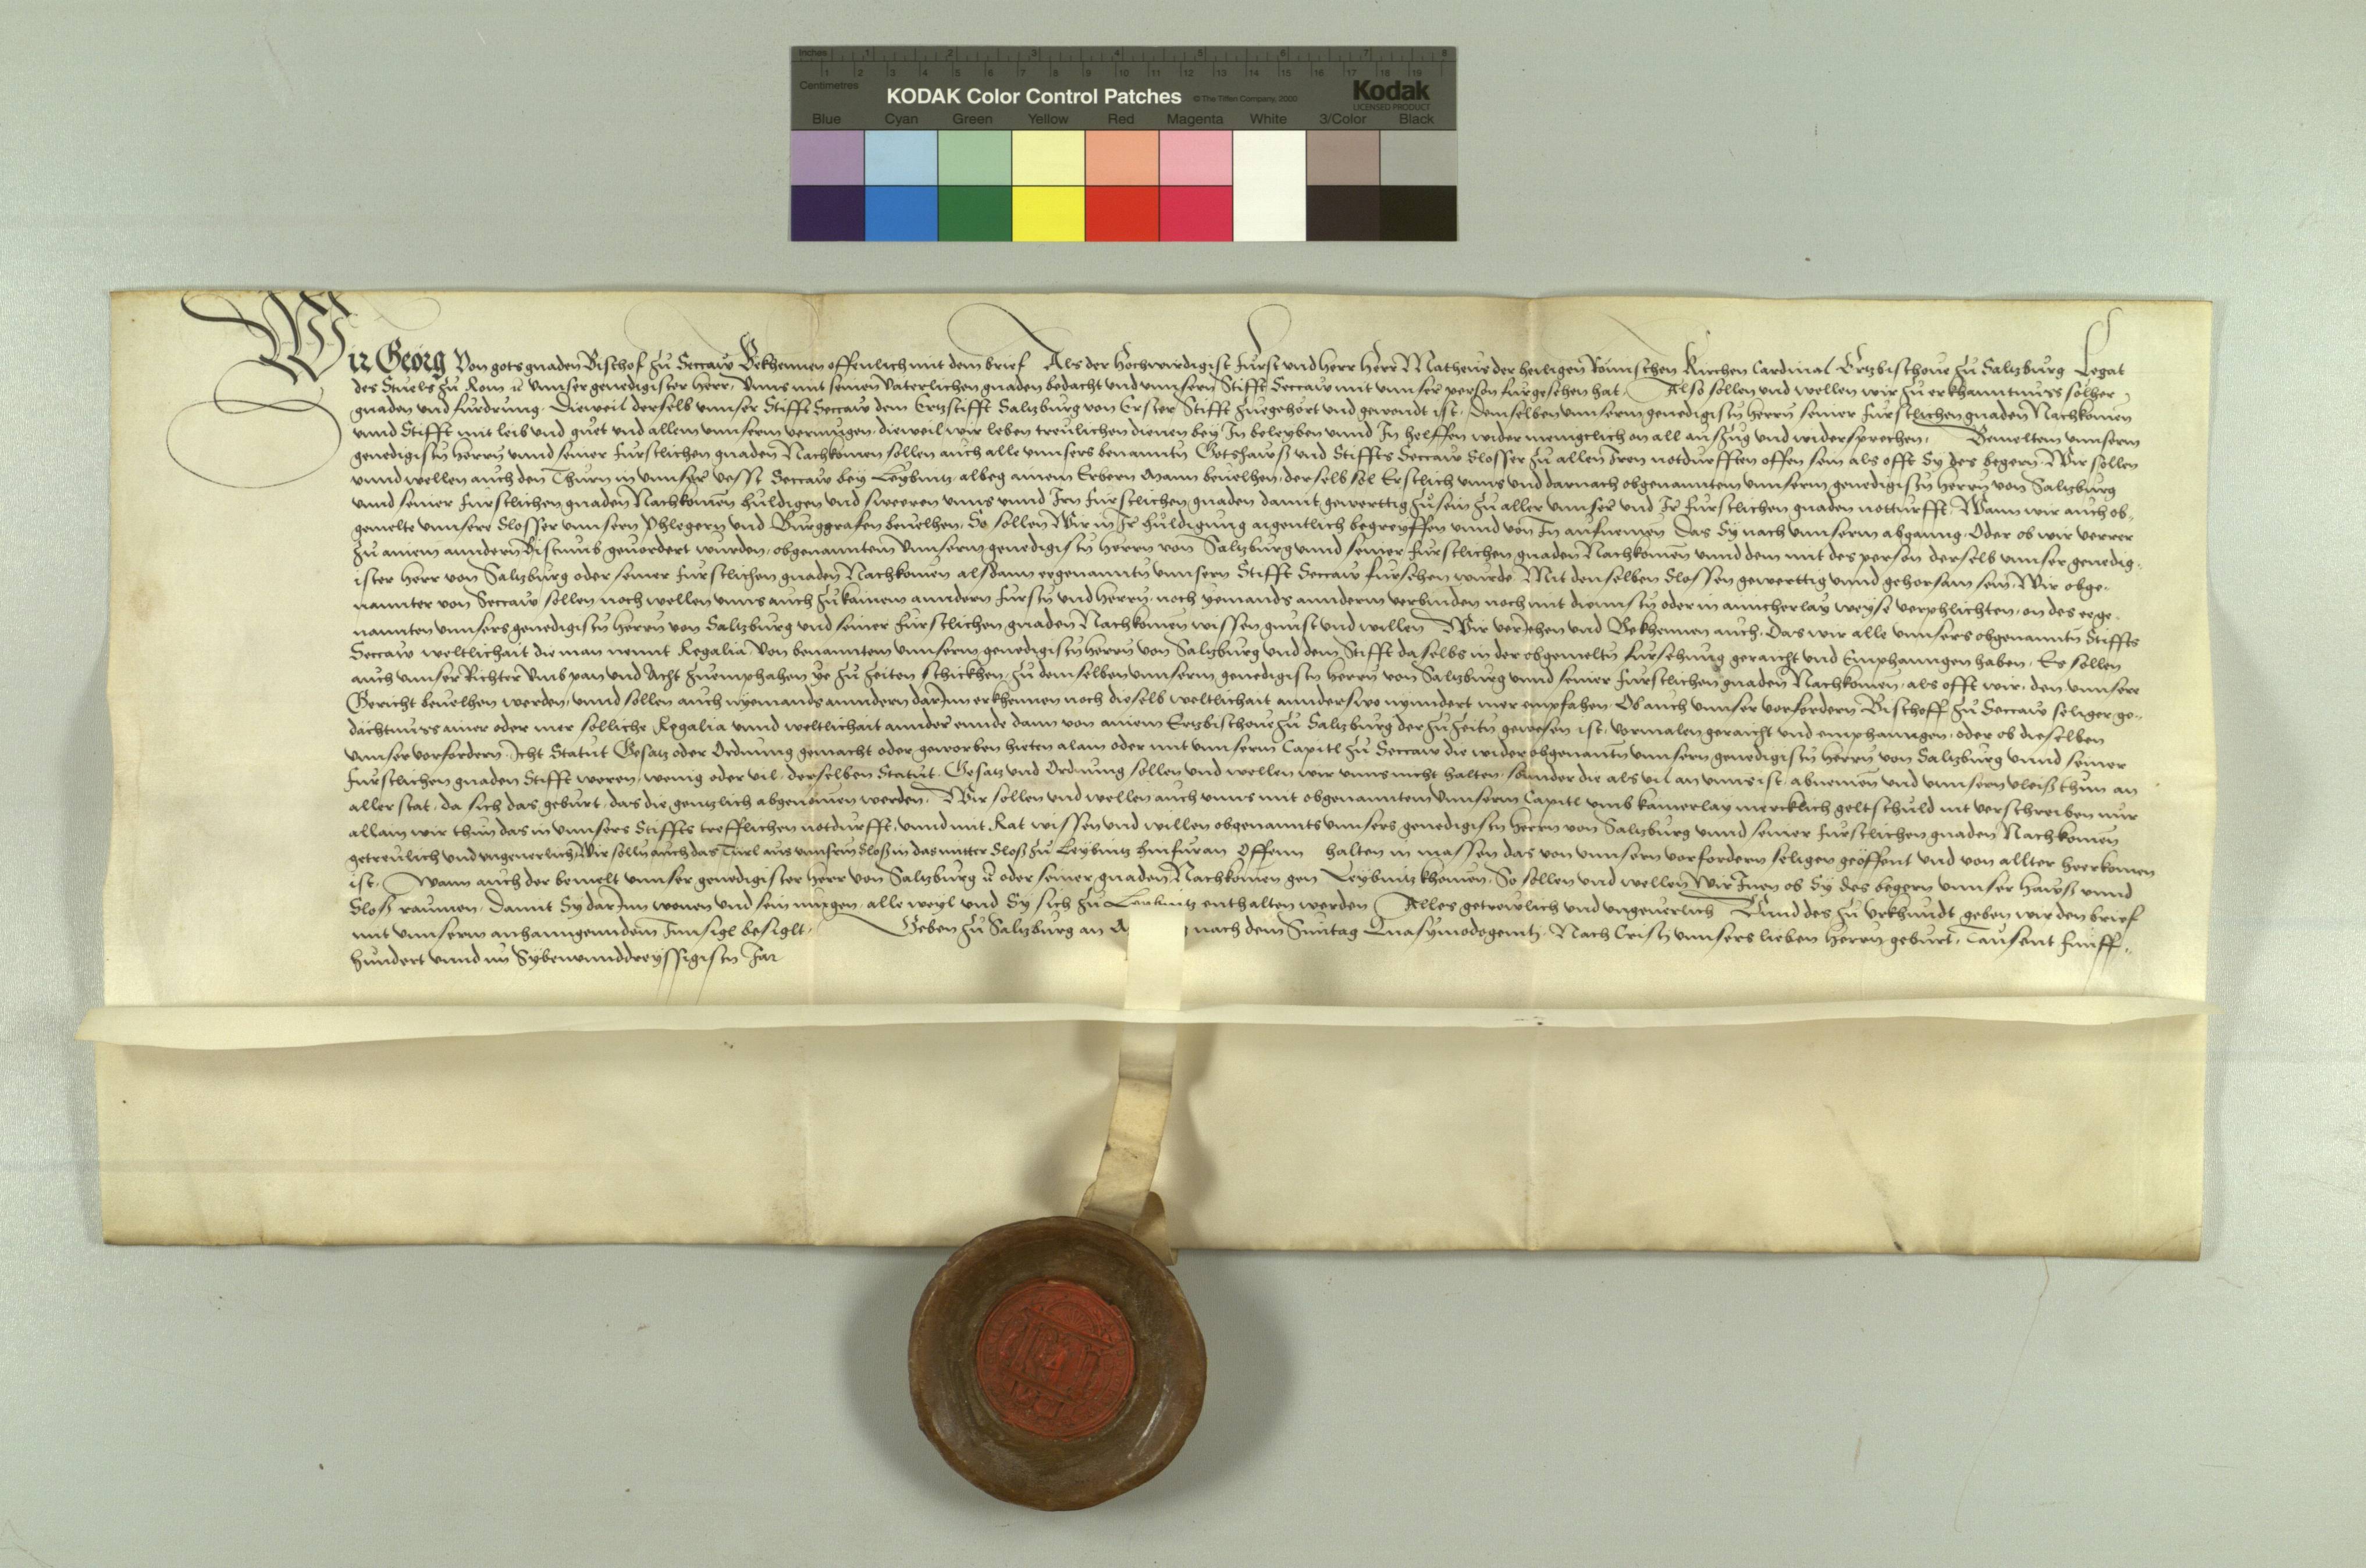 Inches 1 2 3 4 5 6 7 8
1 2 3 4 5 6 7 8 9 10 11 12 13 14 15 16 17 18 19
Centimetres
KODAK Color Control Patches © The Tiffen Company, 2000 Kodak
LICENSED PRODUCT
Blue Cyan Green Yellow Red Magenta White 3/Color Black
Wir Georg Von gots gnaden Bischof zu Seccaw Bekhennen offenlich mit dem brief Als der Hochwirdigist Fürst vnd herr herr Matheus der heiligen Römischen Kirchen Cardinal Ertzbischoue zu Saltzburg Legat
des Stuels zu Rom vnnser genedigister herr, Vnns mit seinen Vaterlichen gnaden bedacht vnd vnnsern Stifft Seccaw mit vnnser person fürgesehen hat. Also sollen vnd wellen wir zu erkhanntnuss solher
gnaden vnd furdrung. Dieweil derselb vnnser Stifft Seccaw dem Ertzstifft Saltzburg von Erster Stifft zuegehört vnd gewendt ist. Demselben vnnserm genedigistn herrn seiner Fürstlichen gnaden Nachkomen
vnnd Stifft mit leib vnd guet vnd allem vnnserm vermugen. dieweil wir leben treulichen dienen bey In beleyben vnnd In helffen wider menigclich on all auszug vnd widersprechen. Bemeltem vnnserm
genedigistn herrn vnnd seiner Fürstlichen gnaden Nachkomen sollen auch alle vnnsers benanntn Gotshawß vnd Stiffts Seccaw Slosser zu allen Iren notdurfften offen sein als offt Sy des begern. Wir sollen
vnnd wellen auch den Thurn in vnnser vesst Seccaw bey Leybnitz albeg ainem Erbern Mann beuelhen. derselb sol Erstlich vnns vnd darnach obgenanntem vnnserm genedigistn herrn von Saltzburg
vnnd seiner Furstlichen gnaden Nachkomen huldigen vnd sweeren vnns vnnd Irn Fürstlichen gnaden damit gewerttig zu sein zu aller vnnser vnd Ir Fürstlichen gnaden notturfft. Wann wir auch ob-
gemelte vnnsere Slosser vnnsern Phlegern vnd Burggrafen beuelhen. So sollen Wir in Ir huldigung aigentlich begreyffen vnnd von In aufnemen Das Sy nach vnnserm abganng. Oder ob wir verrer
zu ainem anndern Bistumb geuordert wurden. obgenanntem vnnserm genedigistn herrn von Saltzburg vnnd seiner Fürstlichen gnaden Nachkomen vnnd dem mit des person derselb vnnser genedig-
ister herr von Saltzburg oder seiner Furstlichen gnaden Nachkomen alsdann egenanntn vnnsern Stifft Seccaw fürsehen wurde Mit denselben Slossen gewerttig vnnd gehorsam sein. Wir obge-
nannter von Seccaw sollen noch wellen vnns auch zu kainem anndern Fürstn vnd herrn. noch yemands annderm verbinden noch mit diennstn oder in ainicherlay weyse verphlichten. on des ege-
nannten vnnsers genedigistn herrn von Saltzburg vnd seiner Fürstlichen gnaden Nachkomen wissen gunst vnd willen Wir veriehen vnd Bekhennen auch. Das wir alle vnnsers obgenanntn Stiffts
Seccaw weltlichait die man nennt Regalia Von benanntem vnnserm genedigistn herrn von Saltzburg vnd dem Stifft daselbs in der obgemeltn fürsehung geraicht vnd Emphanngen haben. Es sollen
auch vnnser Richter Vmb pan vnd Acht zuemphahen ye zu zeiten schickhen. zu demselben vnnserm genedigistn herrn von Saltzburg vnnd seiner Fürstlichen gnaden Nachkomen. als offt wir. den vnnsere
Gericht beuelhen werden. vnnd sollen auch nyemands anndern darInn erkhennen noch dieselb weltlichait annderswo nynndert mer empfahen. Ob auch vnnser vorfordern Bischoff zu Seccaw seliger ge-
dächtnuss ainer oder mer solliche Regalia vnnd weltlichait annder ennde dann von ainem Ertzbischoue zu Saltzburg der zu zeitn gewesen ist. vormalen geraicht vnd emphanngen. oder ob dieselben
vnnser vorfordern Icht Statut Gesatz oder Ordnung gemacht oder geworben hieten alain oder mit vnnserm Capitl zu Seccaw die wider obgenantn vnnsern genedigistn herrn von Saltzburg vnnd seiner
Furstlichen gnaden Stifft weren. wenig oder vil. derselben Statut. Gesatz vnd Ordnung sollen vnd wellen wir vnns nicht halten. sunder die als vil an vnns ist. abnemen vnd vnnsern vleiß thun an
aller stat. da sich das geburt. das die gentzlich abgenomen werden. Wir sollen vnd wellen auch vnns mit obgenanntem vnnserm Capitl vmb kainerlay mercklich geltschuld nit verschreiben nur
allain wir thun das in vnnsers Stiffts trefflichen notdurfft. vnnd mit Rat wissen vnd willen obgenannts vnnsers genedigistn herrn von Saltzburg vnnd seiner Furstlichen gnaden Nachkomen
getreulich vnd vngeuerlich. Wir solln auch das Türl aus vnnserm Sloß in das mitter Sloß zu Leybnitz hinfuran Offenn halten in massen das von vnnsern vorfordern seligen geöffent vnd von allter heerkomen
ist. Wann auch der bemelt vnnser genedigister herr von Saltzburg oder seiner gnaden Nachkomen gen Leybnitz khomen. So sollen vnd wellen Wir Inen ob Sy des begern vnnser hawß vnnd
Sloß raumen. Damit Sy darInn wonen vnd sein mügen. alle weyl vnd Sy sich zu Leybnitz enthalten werden Alles getrewlich vnd vngeuerlich Vnnd des zu Vrkhundt geben wir den brief
mit vnnserm anhanngenndem Innsigl besiglt. Geben zu Saltzburg an nach dem Sunntag Quasymodogenitj. Nach Cristj vnnsers lieben herrn geburt. Tausent Fünff-
hundert vnnd im Sybenunnddreyssigistn Jar